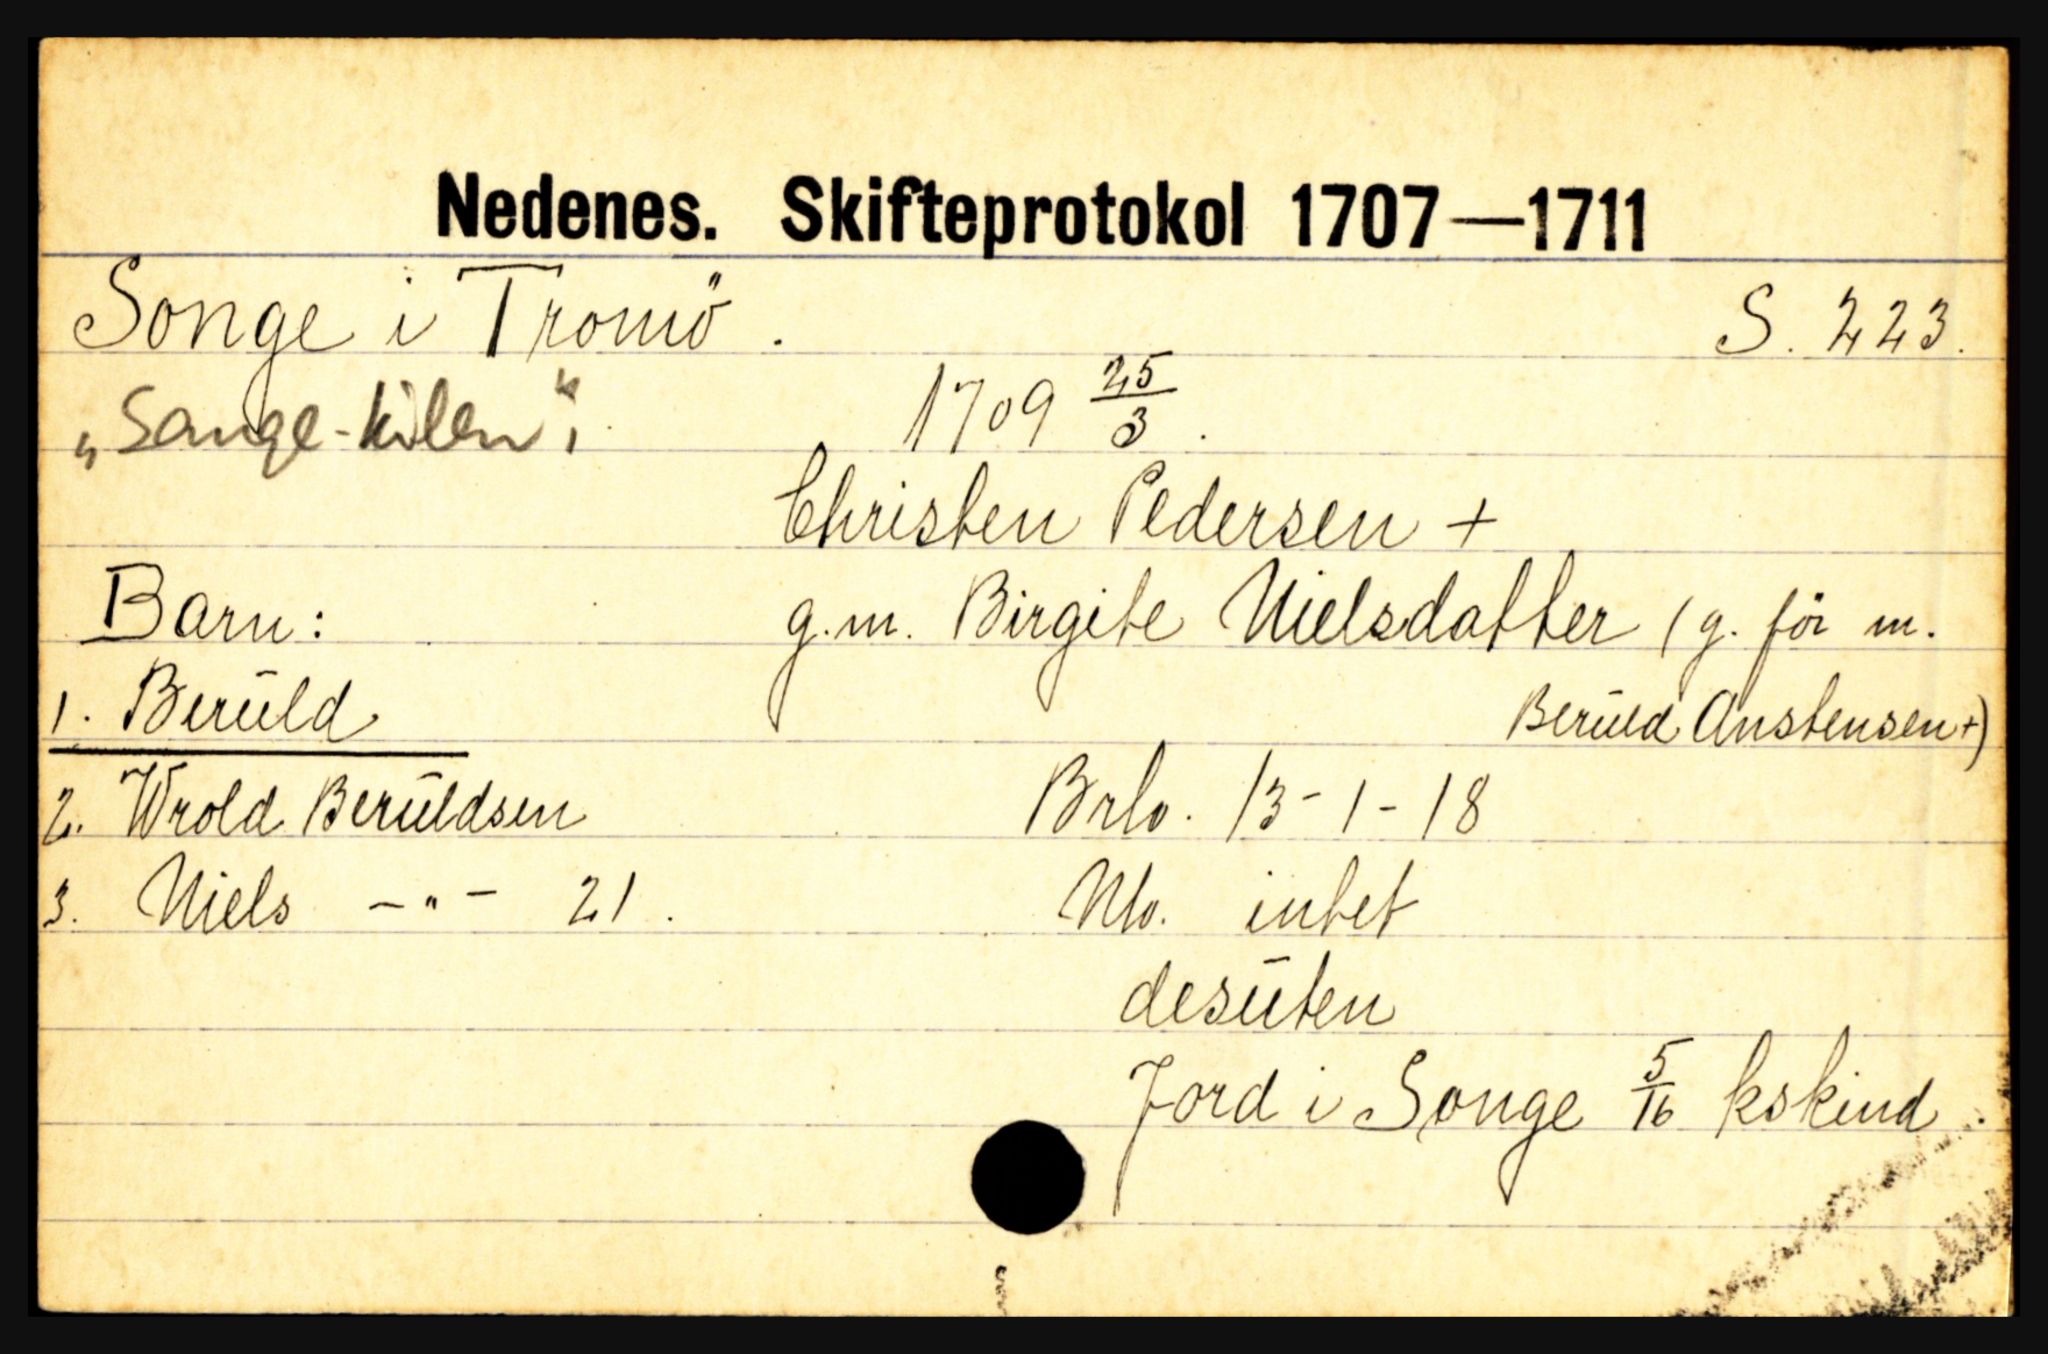 Nedenes. Skifteprotokol 1707—1711
Songe i Tromö. S. 223.
„Sange-kilen“; 1709 25/3.
Christen Pedersen +
Barn: g.m. Birgite Nielsdatter (g. för m.
1. Berŭld Berŭld Anstensen +)
2. Wrold Berŭldsen Brlo. 13-1-18
3. Niels -"- 21. Nlo. intet
desŭten
Jord i Songe 5/16 kskind.